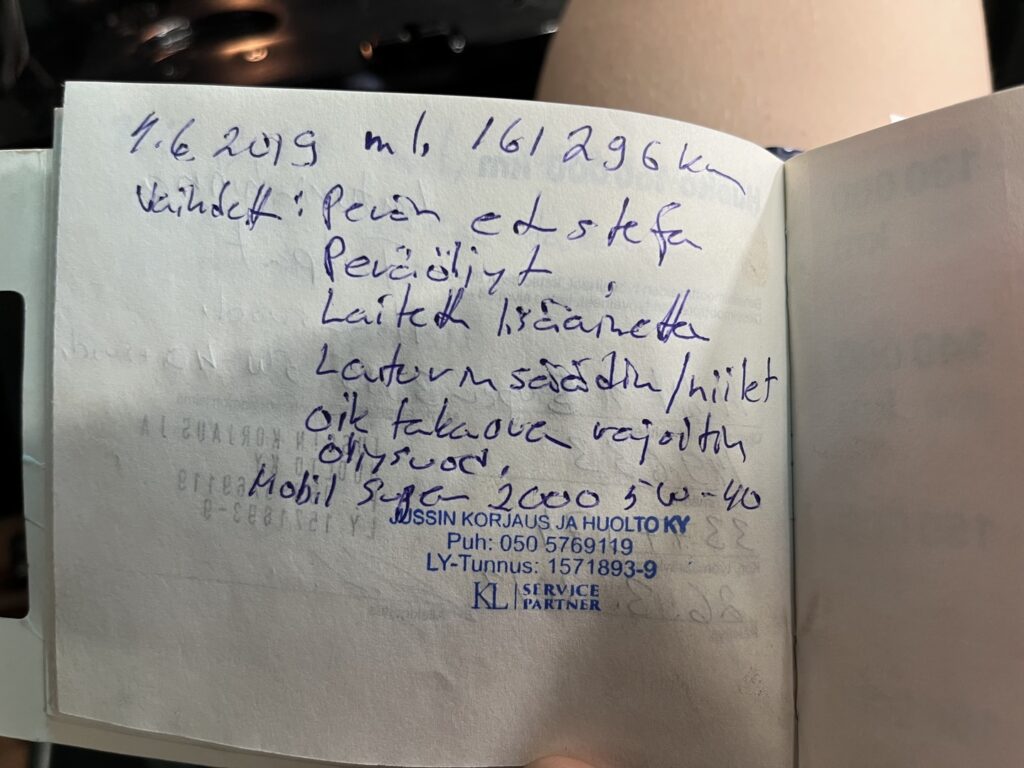 4.6.2019 ml. 161 296 km
Vaihdett: Perän et stefa
Peräöljyt,
Laitett lisäainetta
Laturin säädin/hiilet
oik takaovan rajoitin
öljysuod.
Mobil Super 2000 5W-40
JUSSIN KORJAUS JA HUOLTO KY
Puh: 050 5769119
LY-Tunnus: 1571893-9
KL SERVICE
PARTNER